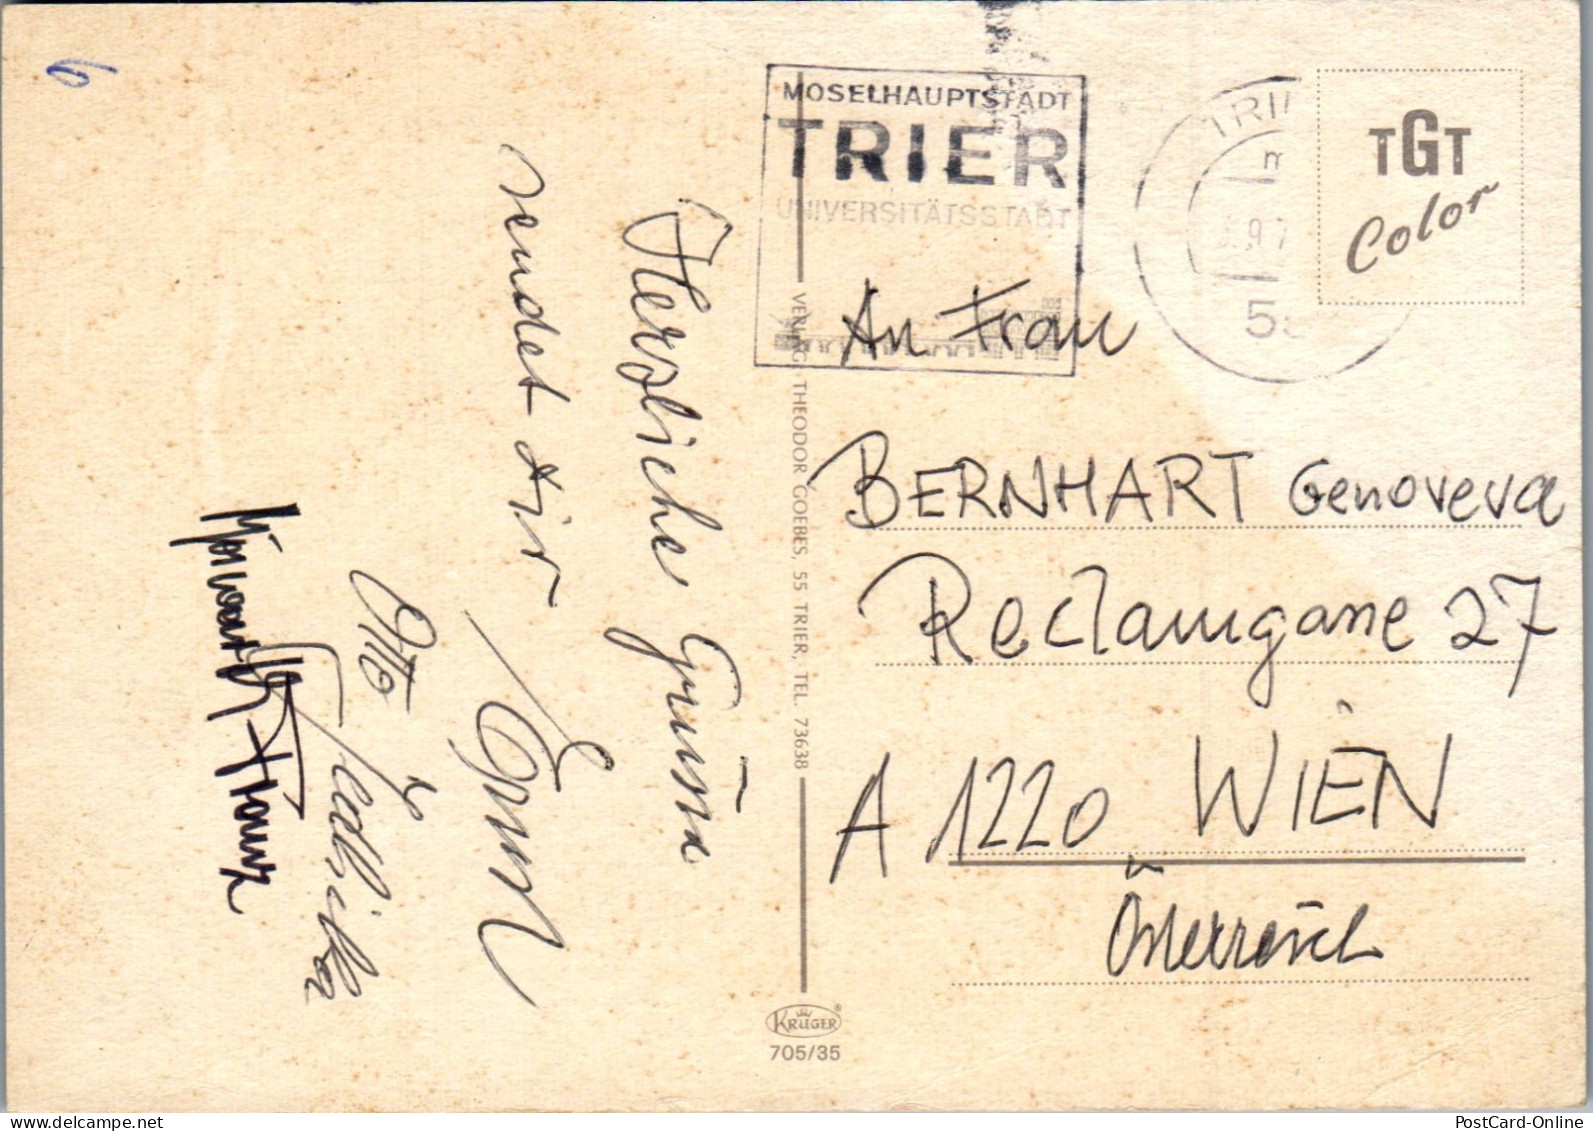 6
MOSELHAUPTSTADT
TRIER
UNIVERSITÄTSSTADT
TGT
Color
Herzliche Grüße
sendet dir
Otto
VERLAG THEODOR GOEBES, 55 TRIER, TEL. 73638
An Frau
BERNHART Genoveva
Reclamgasse 27
A 1220 WIEN
Österreich
KRÜGER
705/35
www.delcampe.net
PostCard-Online